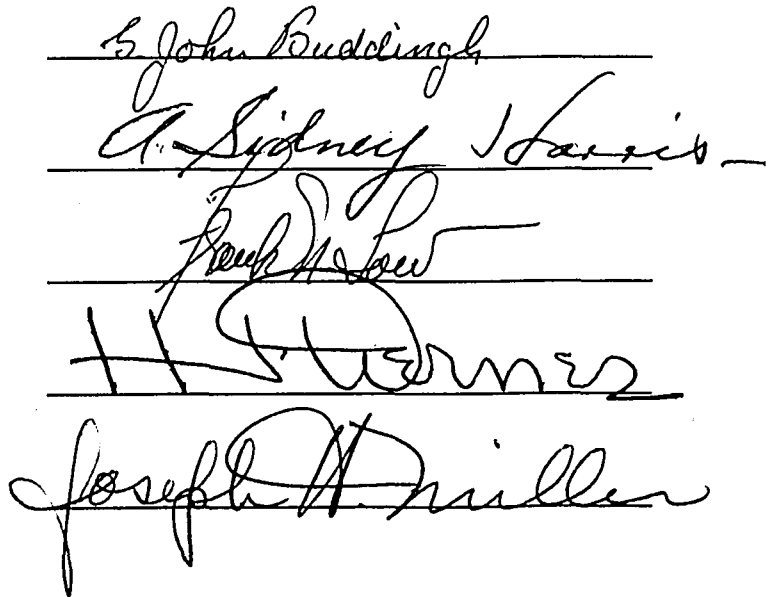 G. John Buddingh
A. Sidney Harris
Frank N. Low
H. Werner
Joseph H. Miller